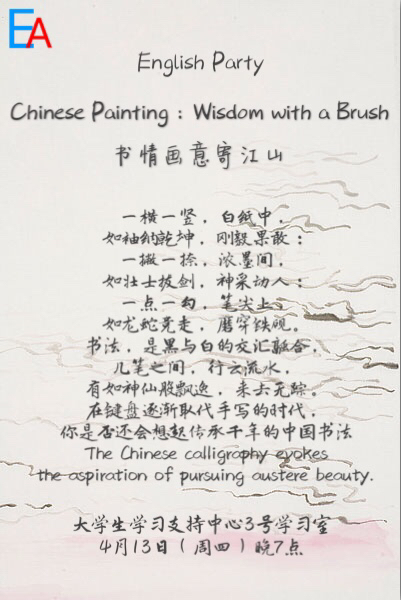 EA
English Party
Chinese Painting : Wisdom with a Brush
书情画意寄江山
一横一竖，白纸中，
如袖纳乾坤，刚毅果敢；
一撇一捺，浓墨间，
如壮士拔剑，神采动人；
一点一勾，笔尖上，
如龙蛇竞走，磨穿铁砚。
书法，是黑与白的交汇融合，
几笔之间，行云流水，
有如神仙般飘逸，来去无踪。
在键盘逐渐取代手写的时代，
你是否还会想起传承千年的中国书法
The Chinese calligraphy evokes
the aspiration of pursuing austere beauty.
大学生学习支持中心3号学习室
4月13日（周四）晚7点